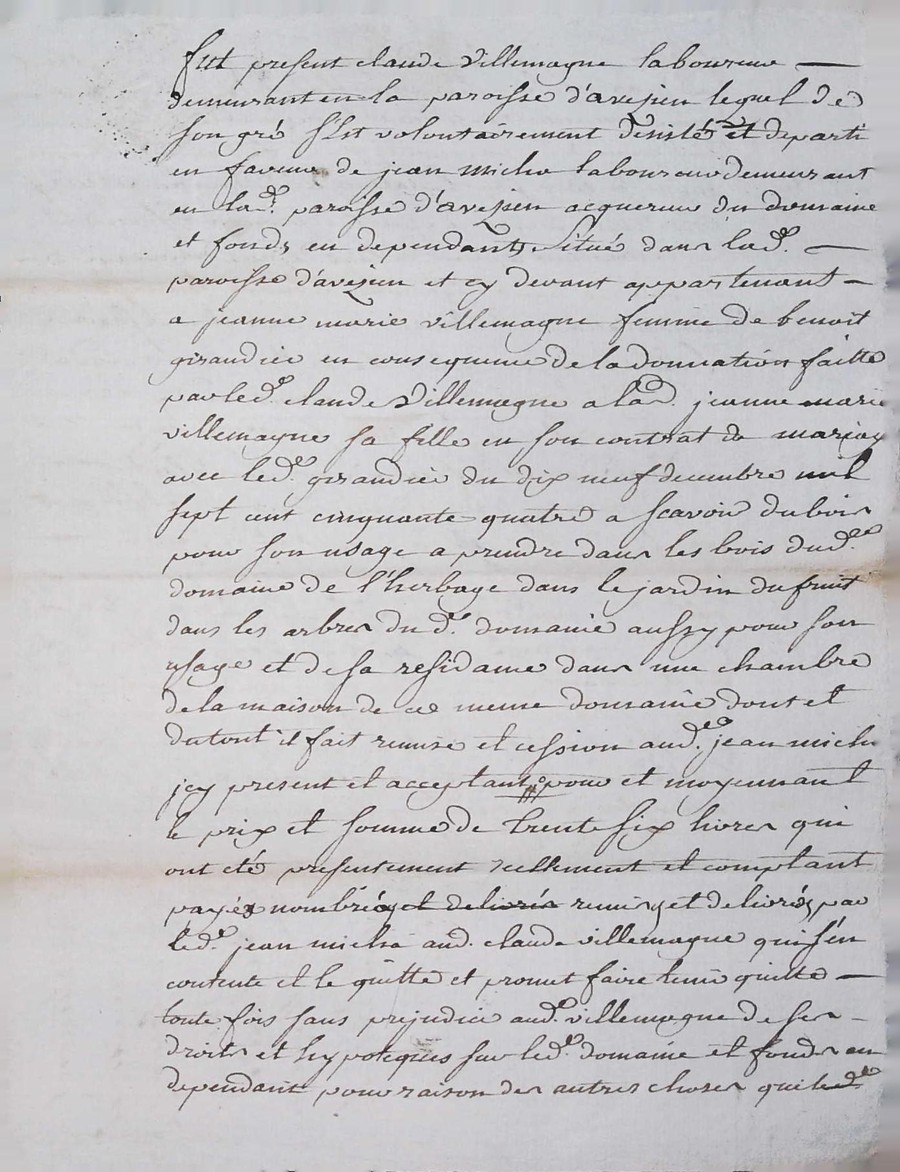 fut present claude Villemagne laboureur —
demeurant en la paroisse d'avejen lequel de
son gré s'est volontairement desisté et departi
en faveur de jean miche laboureur demeurant
en lad.e paroisse d'avejen acquereur du domaine
et fonds en dependants situé dans lad.e —
paroisse d'avejen et cy devant appartenant —
a jeanne marie villemagne femme de benoit
giraudier en consequence de la donnation faitte
par led.t claude Villemagne a lad. jeanne marie
villemagne sa fille en son contrat de mariage
avec led.t giraudier du dix neuf decembre mil
sept cent cinquante quatre a scavoir du bois
pour son usage a prendre dans les bois dud.t
domaine de l'herbage dans le jardin du fruit
dans les arbres du d.t domaine aussy pour son
usage et de sa residance dans une chambre
de la maison de ce meme domaine dont et
du tout il fait remise et cession aud.t jean miche
jcy present et acceptant pour et moyennant
le prix et somme de trente six livres qui
ont eté presentement réellement et comptant
payés nombrés et delivrés remis et delivrés par
led.t jean miche aud. claude villemagne qui s'en
contente et le quitte et promet faire tenir quitte —
toute fois sans prejudice aud.t villemagne de ses —
droits et hypoteques sur led.t domaine et fonds en
dependant pour raison des autres choses que led.t